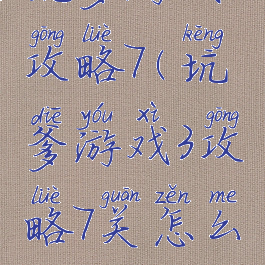 gōng lüè kēng
攻略7(坑
diē yóu xì gōng
爹游戏3攻
lüè guān zěn me
略7关怎么